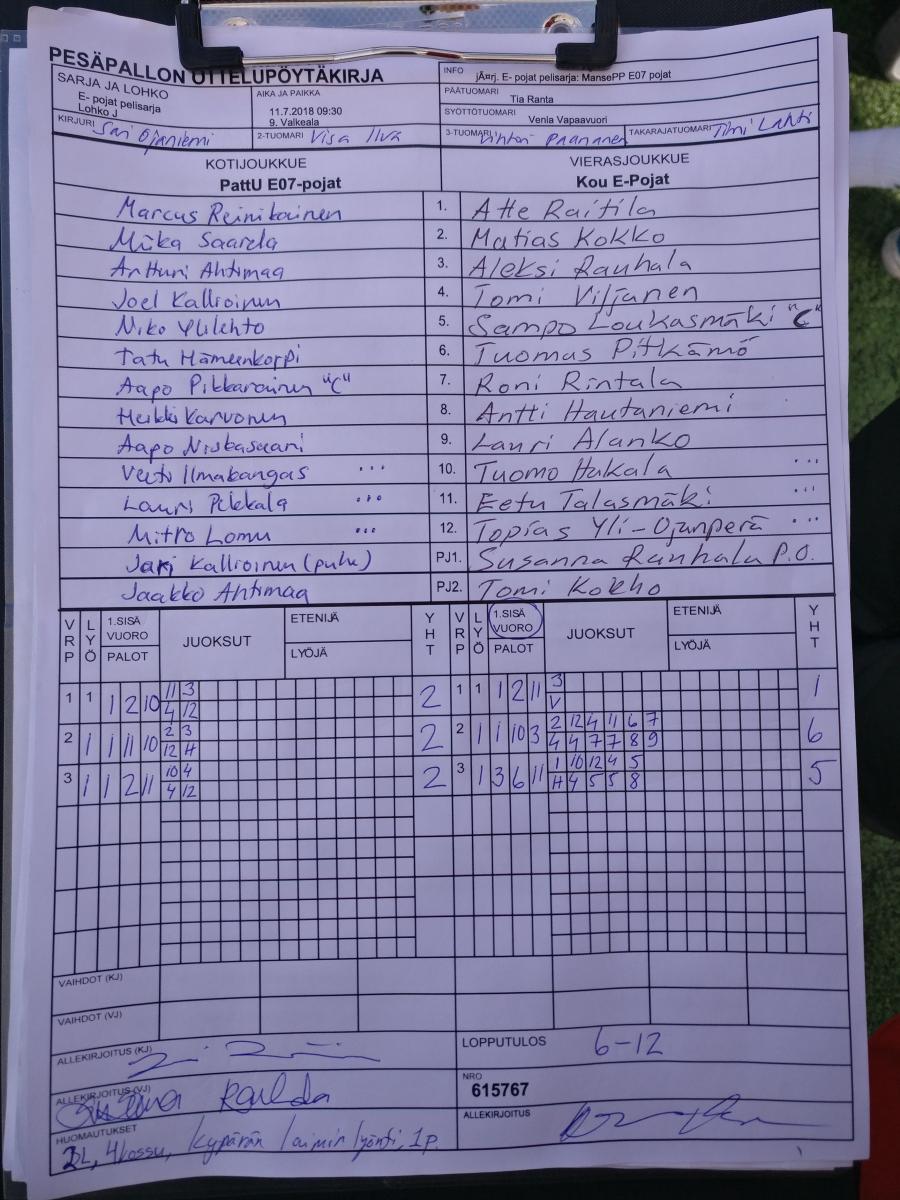 PESÄPALLON OTTELUPÖYTÄKIRJA
SARJA JA LOHKO
E- pojat pelisarja
Lohko J
AIKA JA PAIKKA
11.7.2018 09:30
9. Valkeala
INFO
jÃ¤rj. E- pojat pelisarja: MansePP E07 pojat
PÄÄTUOMARI
Tia Ranta
SYÖTTÖTUOMARI
Venla Vapaavuori
KIRJURI Sari Ojaniemi
2-TUOMARI Visa Ilvä
3-TUOMARI Vihtori Paananen
TAKARAJATUOMARI Timi Lahti
KOTIJOUKKUE
PattU E07-pojat
VIERASJOUKKUE
Kou E-Pojat
Marcus Reinikainen 1. Atte Raitila
Miika Saarela 2. Matias Kokko
Artturi Ahtimaa 3. Aleksi Rauhala
Joel Kallioinen 4. Tomi Viljanen
Niko Ylilehto 5. Sampo Loukasmäki "C"
Tatu Hämeenkorpi 6. Tuomas Pitkämö
Aapo Pikkarainen "C" 7. Roni Rintala
Heikki Karvonen 8. Antti Hautaniemi
Aapo Niskasaari 9. Lauri Alanko
Veeti Ilmakangas ... 10. Tuomo Hakala ...
Lauri Pikkala ... 11. Eetu Talasmäki ...
Mitro Lomu ... 12. Topias Yli-Ojanperä ...
Jari Kallioinen (puhe) PJ1. Susanna Rauhala P.O.
Jaakko Ahtimaa PJ2. Tomi Kokko
VRP LYÖ 1.SISÄ VUORO PALOT JUOKSUT ETENIJÄ LYÖJÄ YHT VRP LYÖ 1.SISÄ VUORO PALOT JUOKSUT ETENIJÄ LYÖJÄ YHT
1 1 1 2 10 11 3 2 1 1 1 2 11 3 1
4 12 V
2 1 1 11 10 2 3 2 2 1 1 10 3 2 12 4 11 6 7 6
12 H 4 4 7 7 8 9
3 1 1 2 11 10 4 2 3 1 3 6 11 1 10 12 4 5 5
4 12 H 4 5 5 8
VAIHDOT (KJ)
VAIHDOT (VJ)
ALLEKIRJOITUS (KJ)
LOPPUTULOS 6-12
ALLEKIRJOITUS (VJ)
NRO
615767
ALLEKIRJOITUS
HUOMAUTUKSET
2L, 4 kossu, kypärän laiminlyönti, 1p.